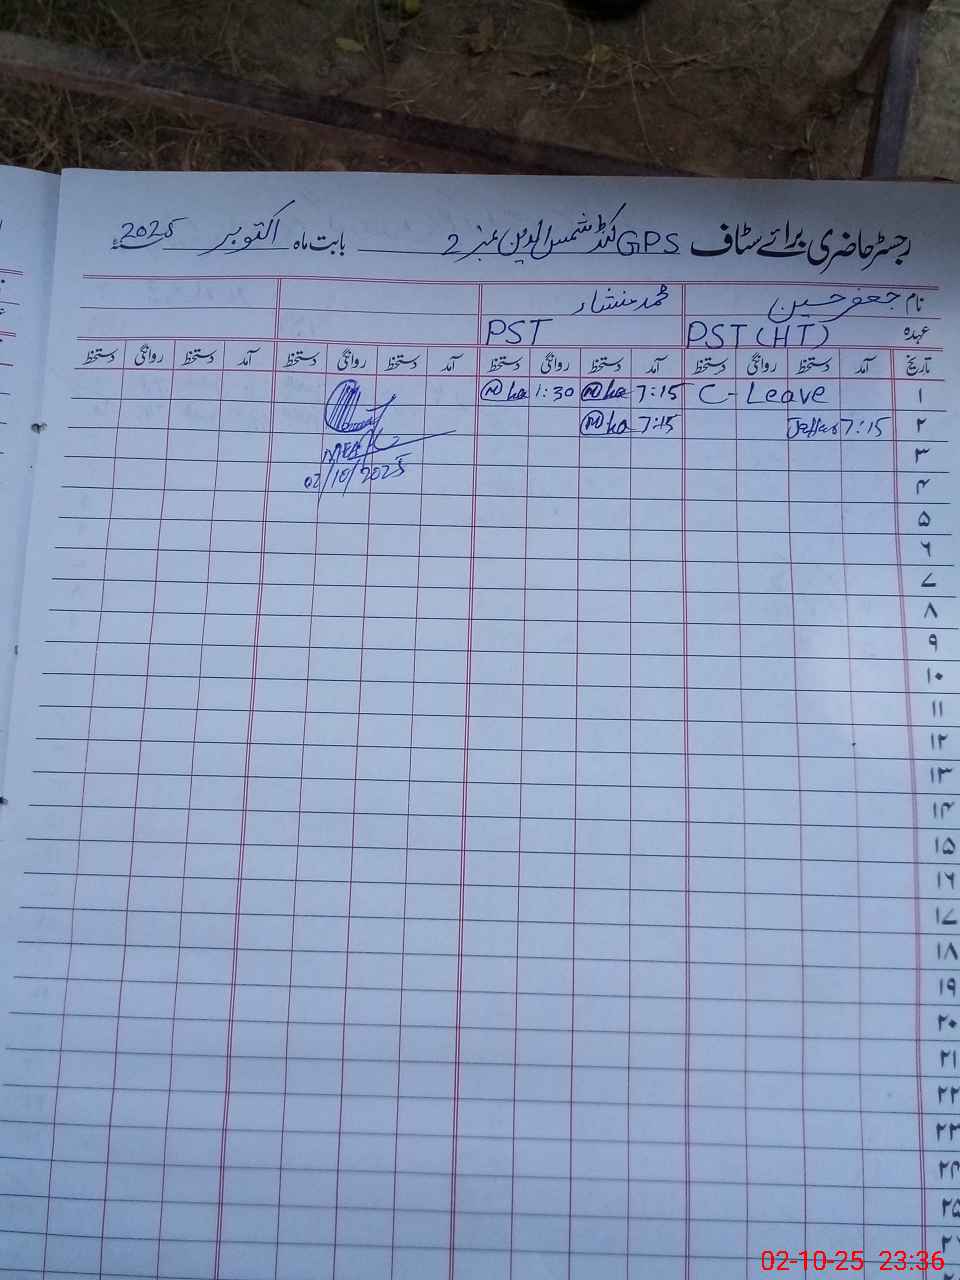 رجسٹر حاضری برائے سٹاف GPS کنڈ شمس الدین نمبر 2 بابت ماہ اکتوبر 2025ء
نام جعفر حسین محمد منشاء
عہدہ PST (HT) PST
تاریخ آمد دستخط روانگی دستخط آمد دستخط روانگی دستخط آمد دستخط روانگی دستخط آمد دستخط روانگی دستخط
۱ C-Leave 7:15 1:30
۲ 7:15 Jaffar 7:15
۳ MEA
۴ 02/10/2025
۵
۶
۷
۸
۹
۱۰
۱۱
۱۲
۱۳
۱۴
۱۵
۱۶
۱۷
۱۸
۱۹
۲۰
۲۱
۲۲
۲۳
۲۴
۲۵
02-10-25 23:36